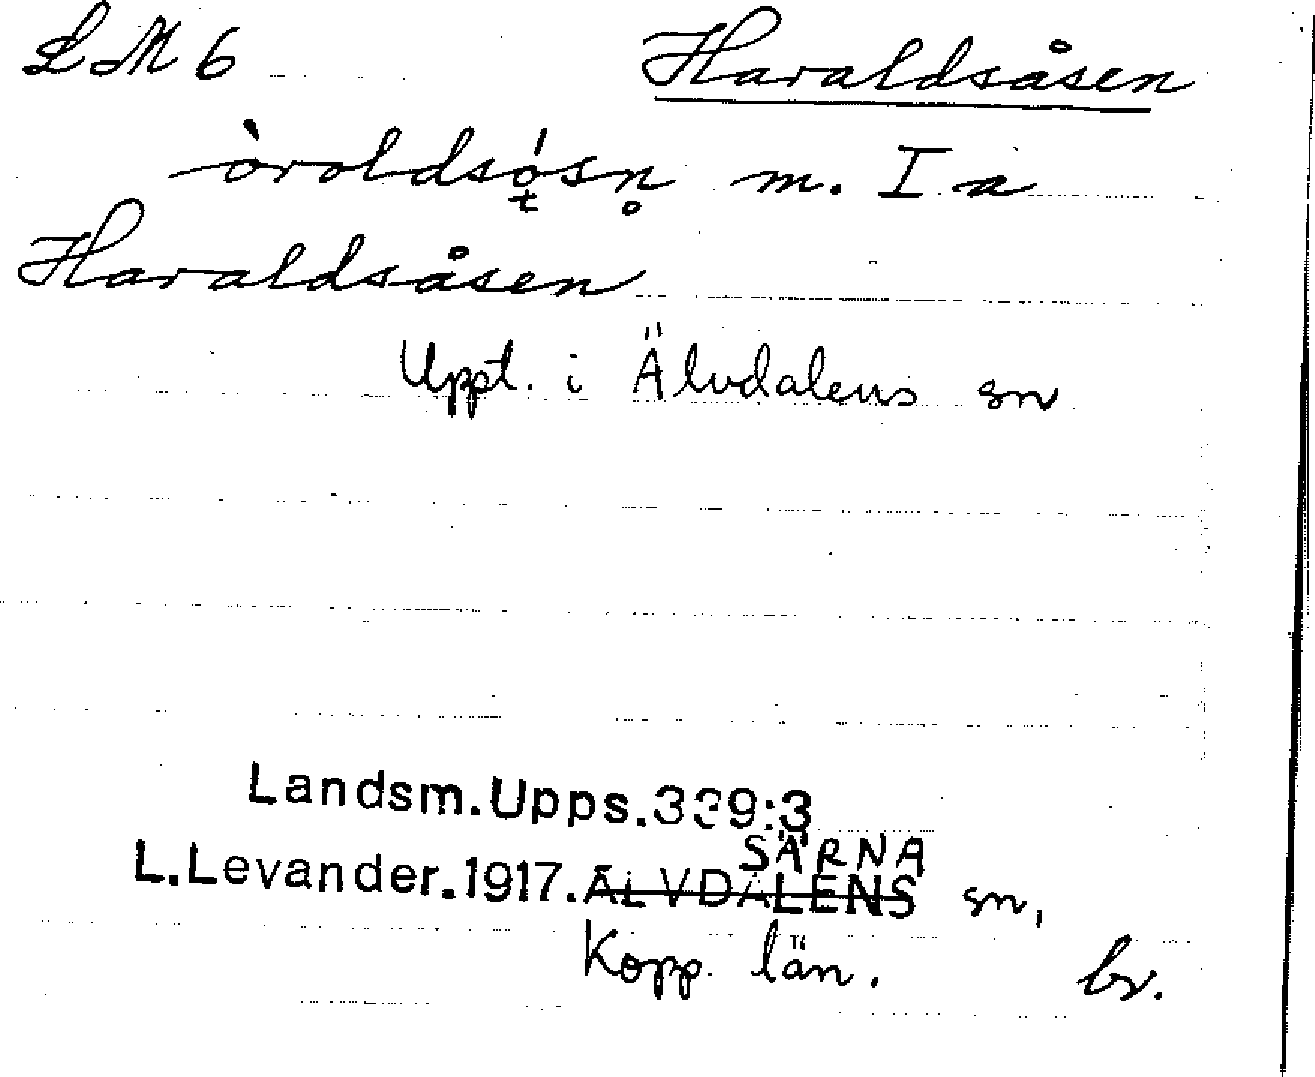 LM 6 Haraldsåsen
òroldsósn̥ m. I a
Haraldsåsen
Uppt. i Älvdalens sn
Landsm.Upps.339:3
SÄRNA
L.Levander.1917.ÄLVDALENS sn,
Kopp. län. br.